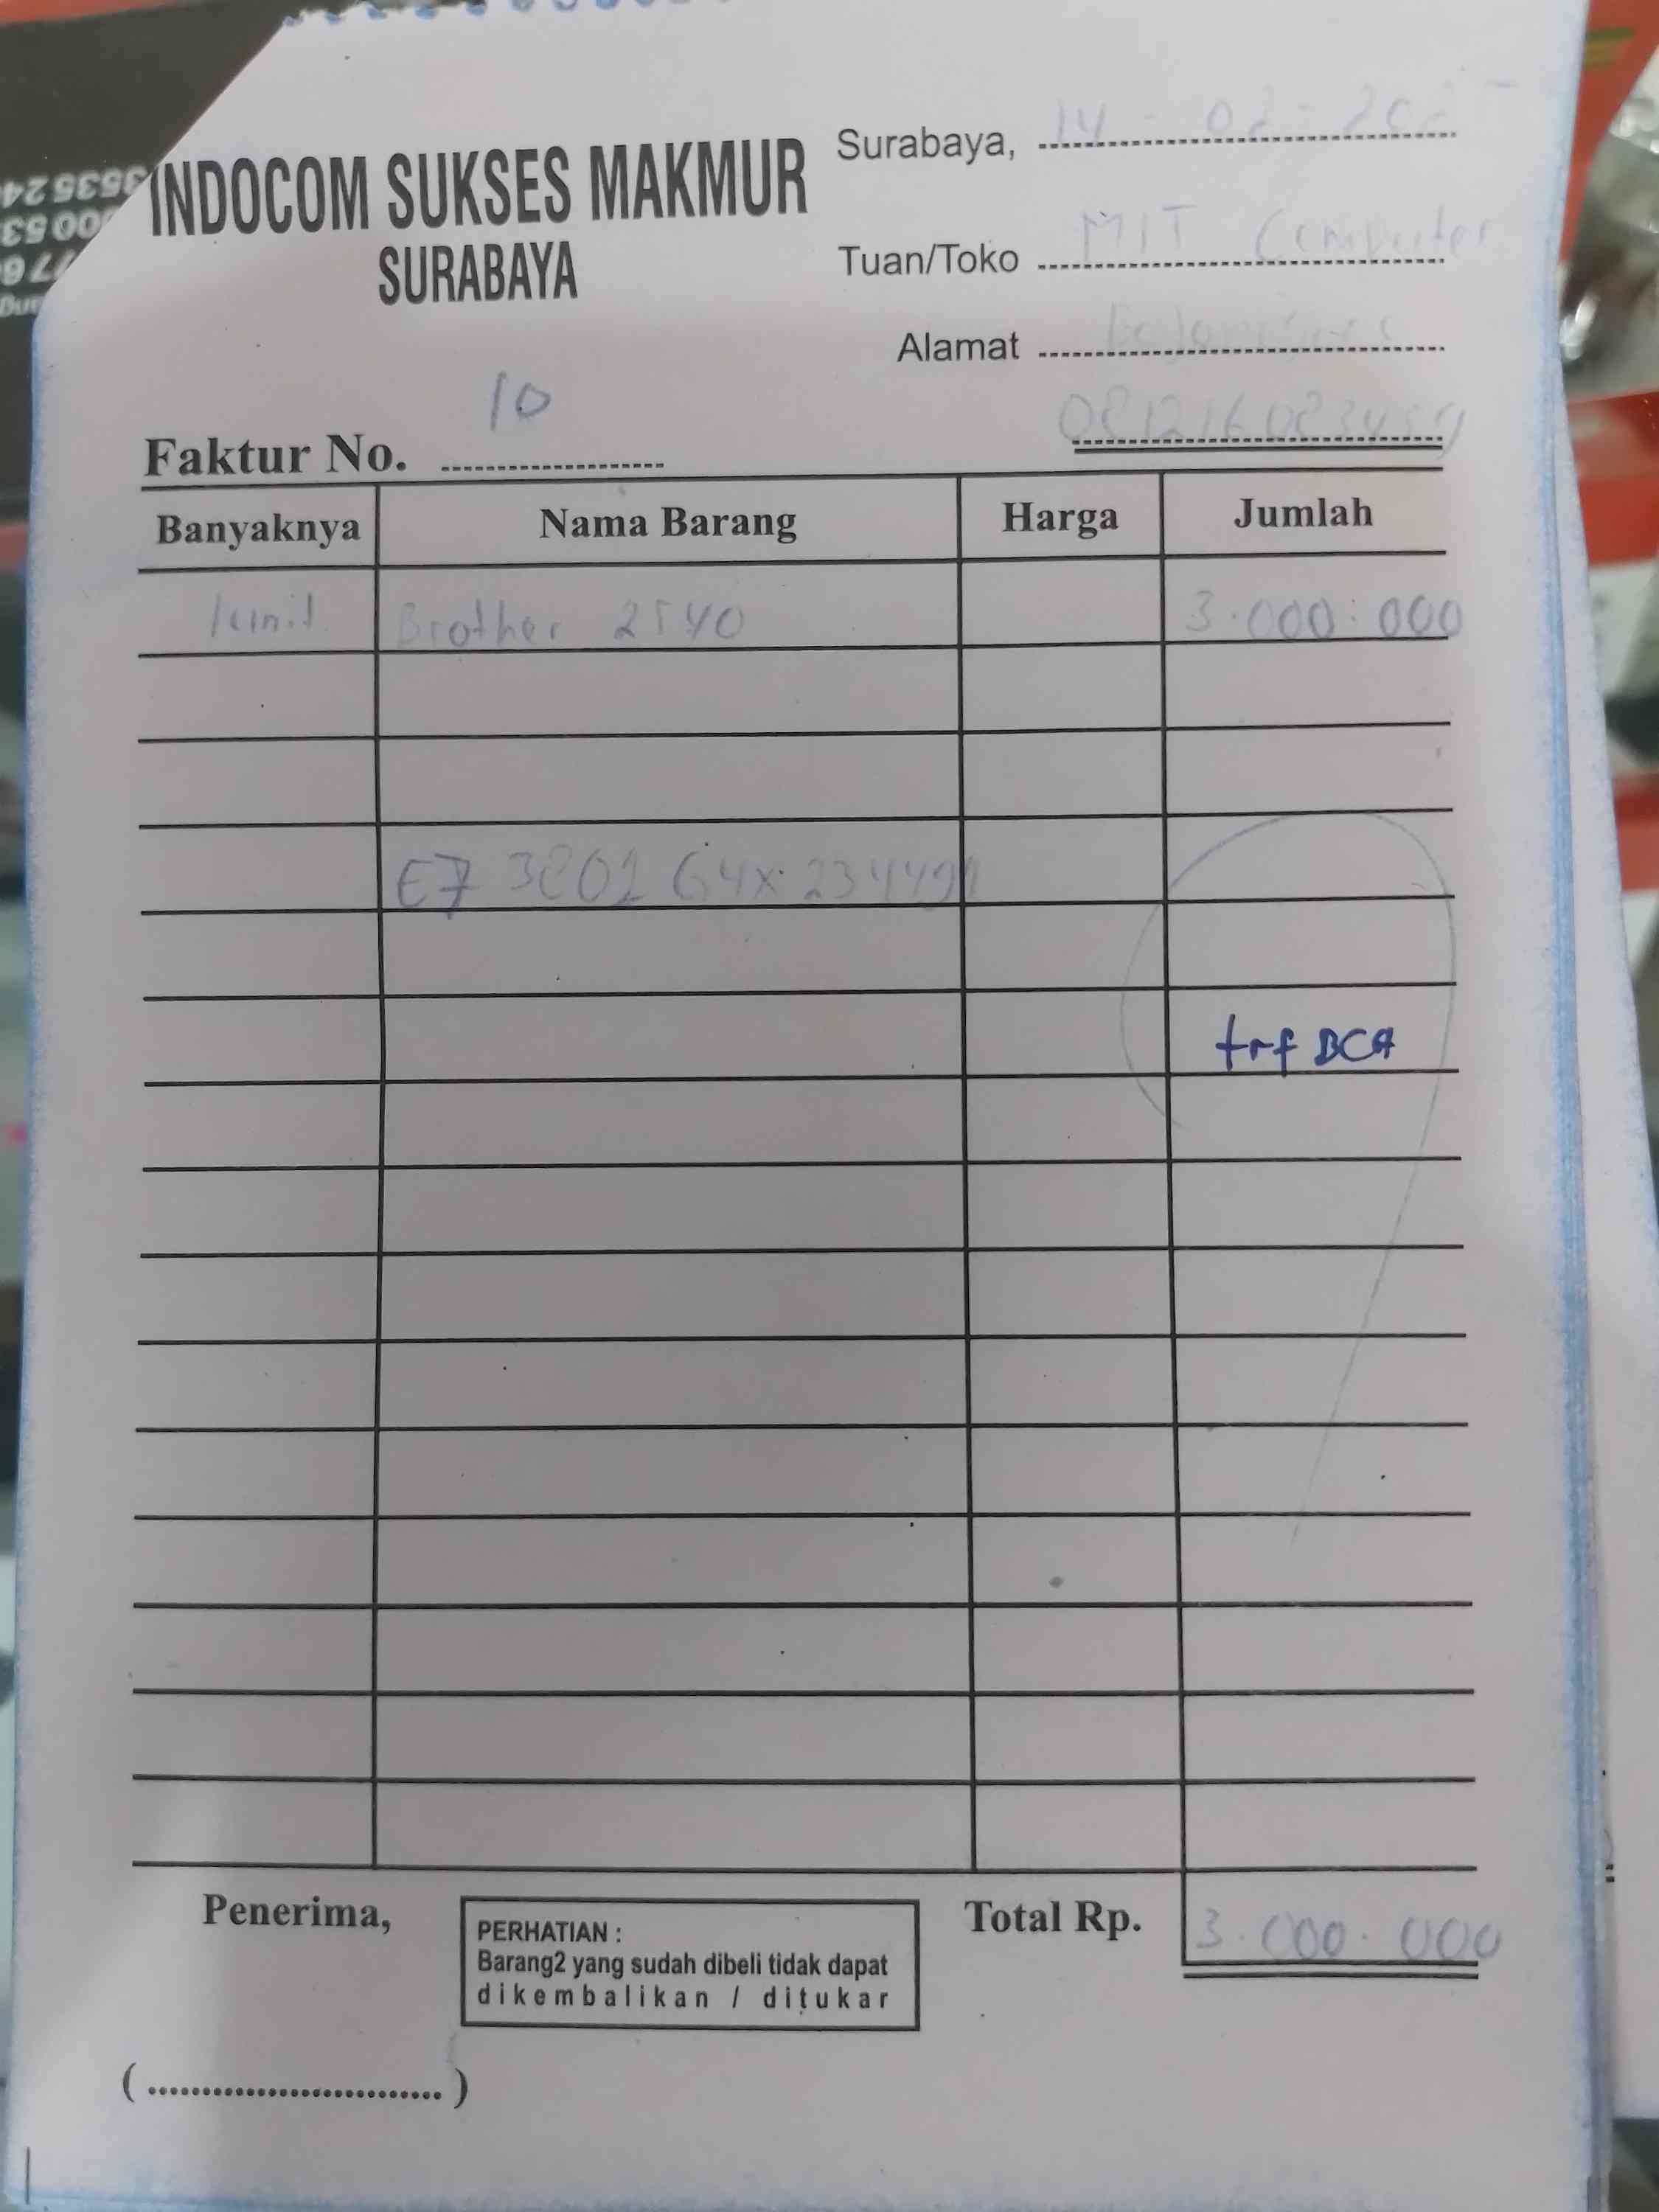 INDOCOM SUKSES MAKMUR
SURABAYA
Surabaya, 14 - 02 - 2025
Tuan/Toko MIT Computer
Alamat
081216083459
Faktur No. 10
Banyaknya Nama Barang Harga Jumlah
1 unit Brother 2540 3.000.000
E73801G4X234491
trf BCA
Penerima,
Total Rp. 3.000.000
PERHATIAN :
Barang2 yang sudah dibeli tidak dapat
dikembalikan / ditukar
(........................... )